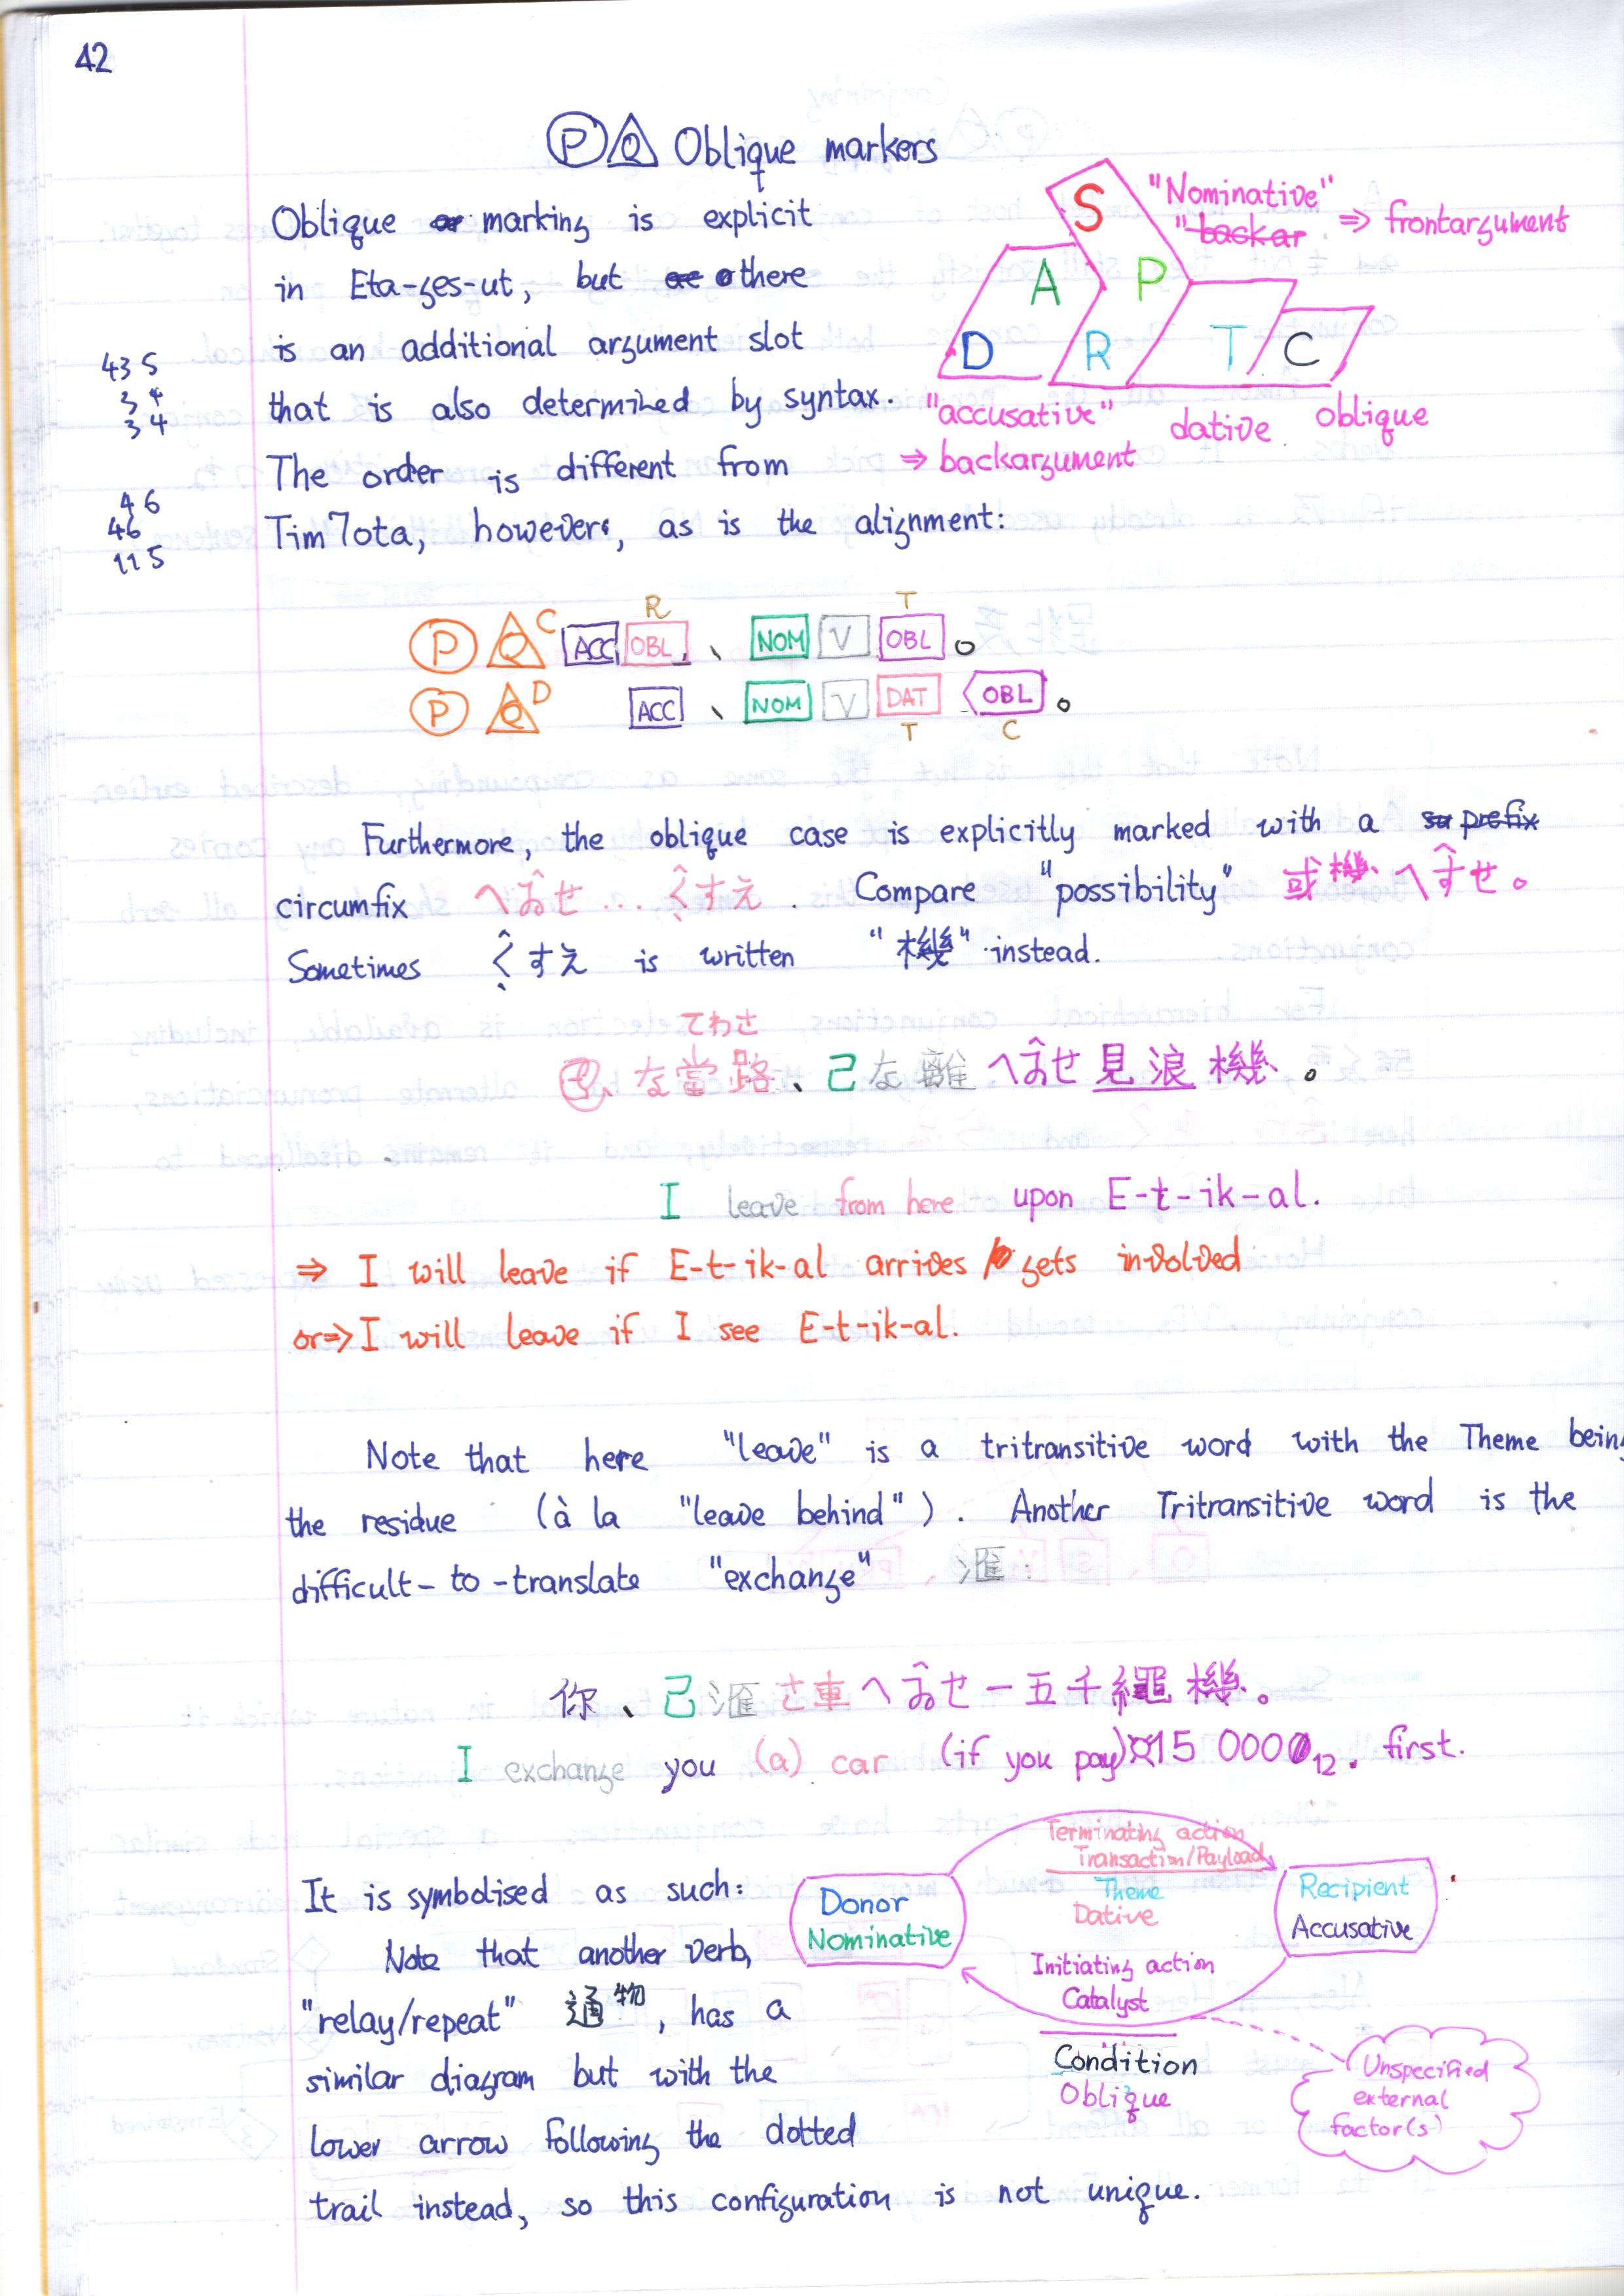 42
Ⓟ Q Oblique markers
Oblique marking is explicit
in Eta-ges-ut, but there
is an additional argument slot
that is also determined by syntax.
The order is different from
Tim7ota, however, as is the alignment:
43 5
3 4
3 4
46
46
11 5
S
A P
D R T C
"Nominative"
"backar ⇒ frontargument
"accusative" dative oblique
⇒ backargument
R T
P Q C ACC OBL 、 NOM V OBL 。
P Q D ACC 、 NOM V DAT OBL 。
T C
Furthermore, the oblique case is explicitly marked with a prefix
circumfix へゐ̂せ...く̂すえ. Compare "possibility" 或機、へす̂せ。
Sometimes く̂すえ is written "機" instead.
てわさ
な當路、己な離へゐ̂せ見浪機。
I leave from here upon E-t-ik-al.
⇒ I will leave if E-t-ik-al arrives / gets involved
or⇒ I will leave if I see E-t-ik-al.
Note that here "leave" is a tritransitive word with the Theme being
the residue (à la "leave behind"). Another Tritransitive word is the
difficult-to-translate "exchange" 滙.
你、己滙さ車へゐ̂せ一五千繩機。
I exchange you (a) car (if you pay) ¤15 0000₁₂. first.
It is symbolised as such:
Note that another verb,
"relay/repeat" 通物, has a
similar diagram but with the
lower arrow following the dotted
trail instead, so this configuration is not unique.
Donor
Nominative
Terminating action
Transaction/Payload
Theme
Dative
Recipient
Accusative
Initiating action
Catalyst
Condition
Oblique
Unspecified
external
factor(s)